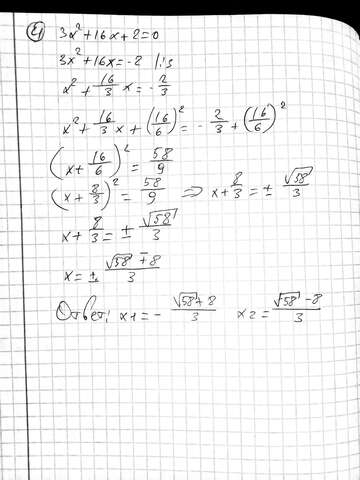 21 3x²+16x+2=0
3x²+16x=-2 |:3
x²+16/3 x=-2/3
x²+16/3 x+(16/6)²=-2/3+(16/6)²
(x+16/6)²=58/9
(x+8/3)²=58/9 => x+8/3=±√58/3
x+8/3=±√58/3
x=±(√58∓8)/3
Ответ: x1=-(√58+8)/3 x2=(√58-8)/3